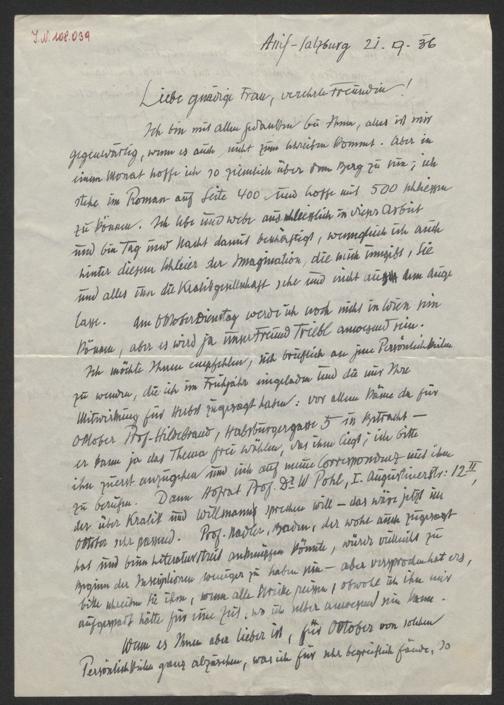 J.N. 108.039
Anif-Salzburg 21. 9. 36
Liebe gnädige Frau, verehrte Freundin!
Ich bin mit allen Gedanken bei Ihnen, alles ist mir
gegenwärtig, wenn es auch nicht zum Schreiben kommt. Aber in
einem Monat hoffe ich so ziemlich über dem Berg zu sein; ich
stehe im Roman auf Seite 400 und hoffe mit 500 schliessen
zu können. Ich lebe und webe ausschliesslich in dieser Arbeit
und bin Tag und Nacht damit beschäftigt, wenngleich ich auch
hinter diesem Schleier der Imagination, die mich umgibt, Sie
und alles um die Kralikgesellschaft sehe und nicht aus dem Auge
lasse. Am Oktoberdienstag werde ich noch nicht in Wien sein
können, aber es wird ja unser Freund Triebl anwesend sein.
Ich möchte Ihnen empfehlen, sich brieflich an jene Persönlichkeiten
zu wenden, die ich im Frühjahr eingeladen und die mir Ihre
Mitwirkung für Herbst zugesagt haben: vor allem käme da für
Oktober Prof. Hildebrand, Habsburgergasse 5 in Betracht —
er kann ja das Thema frei wählen, das ihm liegt; ich bitte
ihn zuerst anzugehen und sich auf meine Correspondenz mit ihm
zu berufen. Dann Hofrat Prof. Dr. W. Pohl, I. Augustinerstr: 12 II,
der über Kralik und Willmann sprechen will — das wäre jetzt im
Oktober sehr passend. Prof. Nadler, Baden, der wohl auch zugesagt
hat und beim Literaturstreit anknüpfen könnte, würde vielleicht zu
Beginn der Inscriptionen weniger zu haben sein — aber versprochen hat er's,
bitte schreiben Sie ihm, wenn alle Stricke reissen, obwohl ich ihn mir
aufgespart hätte für eine Zeit, wo ich selber anwesend sein kann.
Wenn es Ihnen aber lieber ist, für Oktober von solchen
Persönlichkeiten ganz abzusehen, was ich für sehr begreiflich fände, so